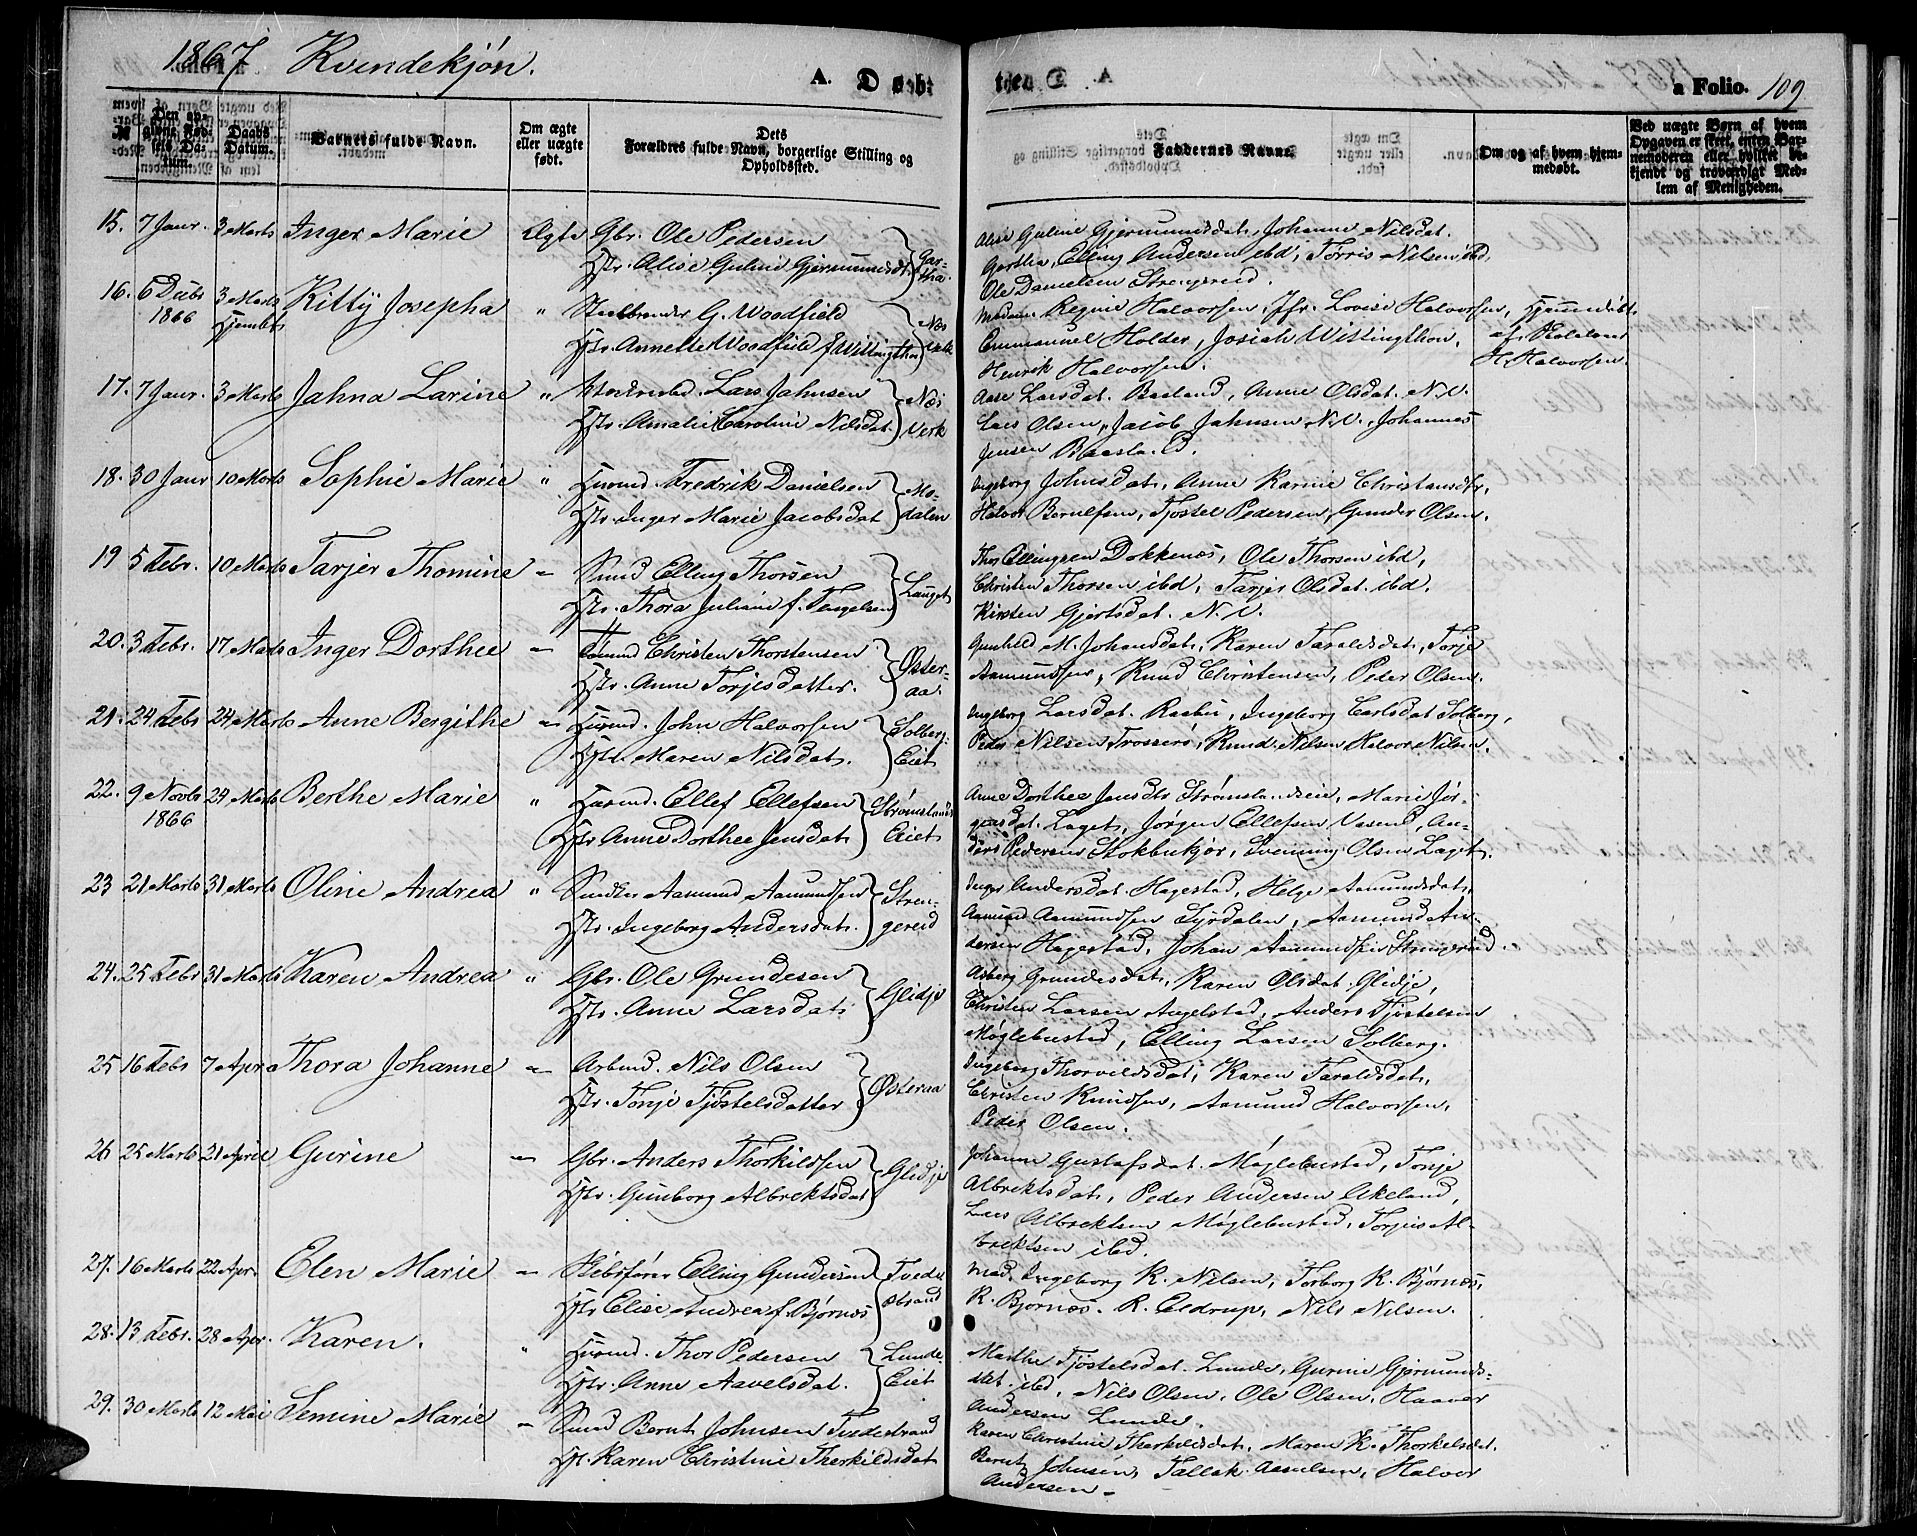 1867 Kvindekjón.
A. Døbte.
a Folio. 109
№
Den opgivne Fødsels Datum.
Daabs Datum.
Barnets fulde Navn.
Om ægte eller uægte født.
Forældres fulde Navn, borgerlige Stilling og Opholdssted.
Faddernes Navne.
Om og af hvem hjemmedøbt.
Ved uægte Børn af hvem Opgaven er skeet, enten Barnemoderen eller hvilket bekjendt og troværdigt Medlem af Menigheden.
15. 7 Janr. 3 Marts Inger Marie Ægte Gbr. Ole Pedersen
Hstr. Alise Guline Gjermundsdt. Gartha.
Alise Guline Gjermundsdat, Johanne Nilsdat.
Gartha, Elling Andersen ibd, Torris Nilsen ibd,
Ole Danielsen Strengereid.
16. 6 Decbr 1866 3 Marts Hjemdbt Kitty Josepha " G. Woodfield
Hstr. Annette Woodfield f. Wittingthon Næs Verk
Madam Regine Halvorsen, Jfr. Lovise Halvorsen,
Emmanuel Holder, Josiah Wittingthon,
Henrik Halvorsen.
Hjemmedøbt
af
H. Halvorsen.
17. 7 Janr. 3 Marts Jahna Larine " Lars Jahnsen
Hstr. Amalie Caroline Nilsdat. Næs Verk
Aase Larsdat. Baasland, Anne Olsdat. N.V.
Lars Olsen, Jacob Jahnsen N.V. Johannes
Jensen Baasland.
18. 30 Janr 10 Marts Sophie Marie " Huusmd. Fredrik Danielsen
Hstr. Inger Marie Jacobsdat Modalen
Ingeborg Johnsdat, Anne Karine Christansdtr,
Halvor Berulfsen, Tjostel Pedersen, Gunder Olsen.
19 5 Febr. 10 Marts Tarjer Thomine " Smd Elling Thorsen
Hstr. Thora Juliane f. Tengelsen Lauget
Thor Ellingsen Dokkenæs, Ole Thorsen ibd,
Christen Thorsen ibd, Tarjer Olsdat. ibd.
Kirsten Gjertsdat. N.V.
20. 3 Febr. 17 Marts Inger Dorthee " Christen Thorstensen
Hstr. Anne Torjesdatter. Østeraa.
Gunhild M. Johansdat, Karen Taraldsdat, Torje
Aamundsen, Knud Christensen, Peder Olsen.
21. 24 Febr 24 Marts Anne Bergithe " Huusmd. John Halvorsen
Hstr. Maren Nilsdat. Solberg Eiet
Ingeborg Larsdat. Raahei, Ingeborg Carlsdat Solberg,
Peder Nilsen Trosserø, Knud Nilsen Halvor Nilsen.
22. 9 Novbr 1866 24 Marts Berthe Marie " Huusmd. Ellef Ellefsen
Hstr Anne Dorthee Jensdat Strømslands Eiet
Anne Dorthee Jensdtr Strømslandseie, Marie Jørgensdat.
Laget, Jørgen Ellefsen Vasend, Anders
Pedersen Stokbukjør, Svenning Olsen Laget.
23 21 Marts 31 Marts Oline Andrea " Aamund Aamundsen
Hstr. Ingeborg Andersdat. Strengereid
Inger Andersdat. Hagestad, Helge Aamundsdat.
Aamund Aamundsen Syrdalen, Aamund Andersen
Hagestad, Johan Aamundsen Strengereid.
24. 25 Febr 31 Marts Karen Andrea " Gbr. Ole Grundesen
Hstr. Anne Larsdat Glidje
Asberg Grundesdat, Karen Olsdat Glidje,
Christen Larsen Angelstad, Anders Tjostelsen
Møglebustad, Elling Larsen Solberg.
25 16 Febr 7 Apr Thora Johanne " Arbmd. Nils Olsen
Hstr. Torje Tjøstelsdatter Østeraa
Ingeborg Thorvildsdat, Karen Taraldsdat,
Christen Knudsen, Aamund Halvorsen,
Peder Olsen.
26 25 Marts 21 April Gurine " Gbr. Anders Thorkildsen
Hstr. Gunborg Albrektsdat Glidje
Johanne Gustafsdat. Møglebustad, Torje
Albrektsdat, Peder Andersen Akeland,
Lars Albrektsen Møglebustad, Torjus Albrektsen
ibd.
27. 16 Marts 22 Apr. Elen Marie " Skibsfører Elling Gundersen
Hstr Elise Andrea f. Bjørnæs Tvedestrand
Mad. Ingeborg K. Nilsen, Torborg K. Bjørnæs,
K. Bjørnæs. R. Eldrup, Nils Nilsen.
28. 13 Febr. 28 Apr. Karen. " Huusmd. Thor Pedersen
Hstr. Anne Aavelsdat. Lunde Eiet
Marthe Tjøstelsdat Lunde, Gurine Gjermundsdat.
ibd, Nils Olsen, Ole Olsen, Haaver
Andersen Lunde.
29. 30 Marts 12 Mai Semine Marie " Smd Bernt Johnsen Tvedestrand
Hst. Karen Christine Therkildsdat
Karen Christine Therkildsdat, Maren K. Thorkelsdat.
Bernt Johnsen, Tallak Aanelsen, Halvor
Andersen.